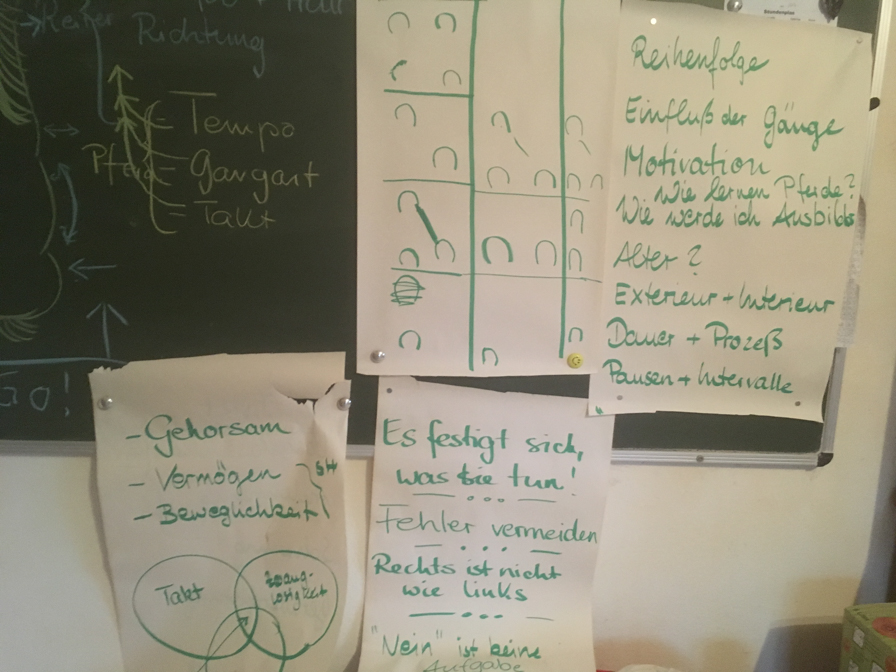 Reiter
Richtung
Tempo
Pferd
Gangart
Takt
Go!
Reihenfolge
Einfluß der Gänge
Motivation
Wie lernen Pferde?
Wie werde ich Ausbild
Alter?
Exterieur + Interieur
Dauer + Prozeß
Pausen + Intervalle
- Gehorsam
- Vermögen
- Beweglichkeit
Takt
Es festigt sich,
was Sie tun!
Fehler vermeiden
Rechts ist nicht
wie links
"Nein" ist keine
Aufgabe